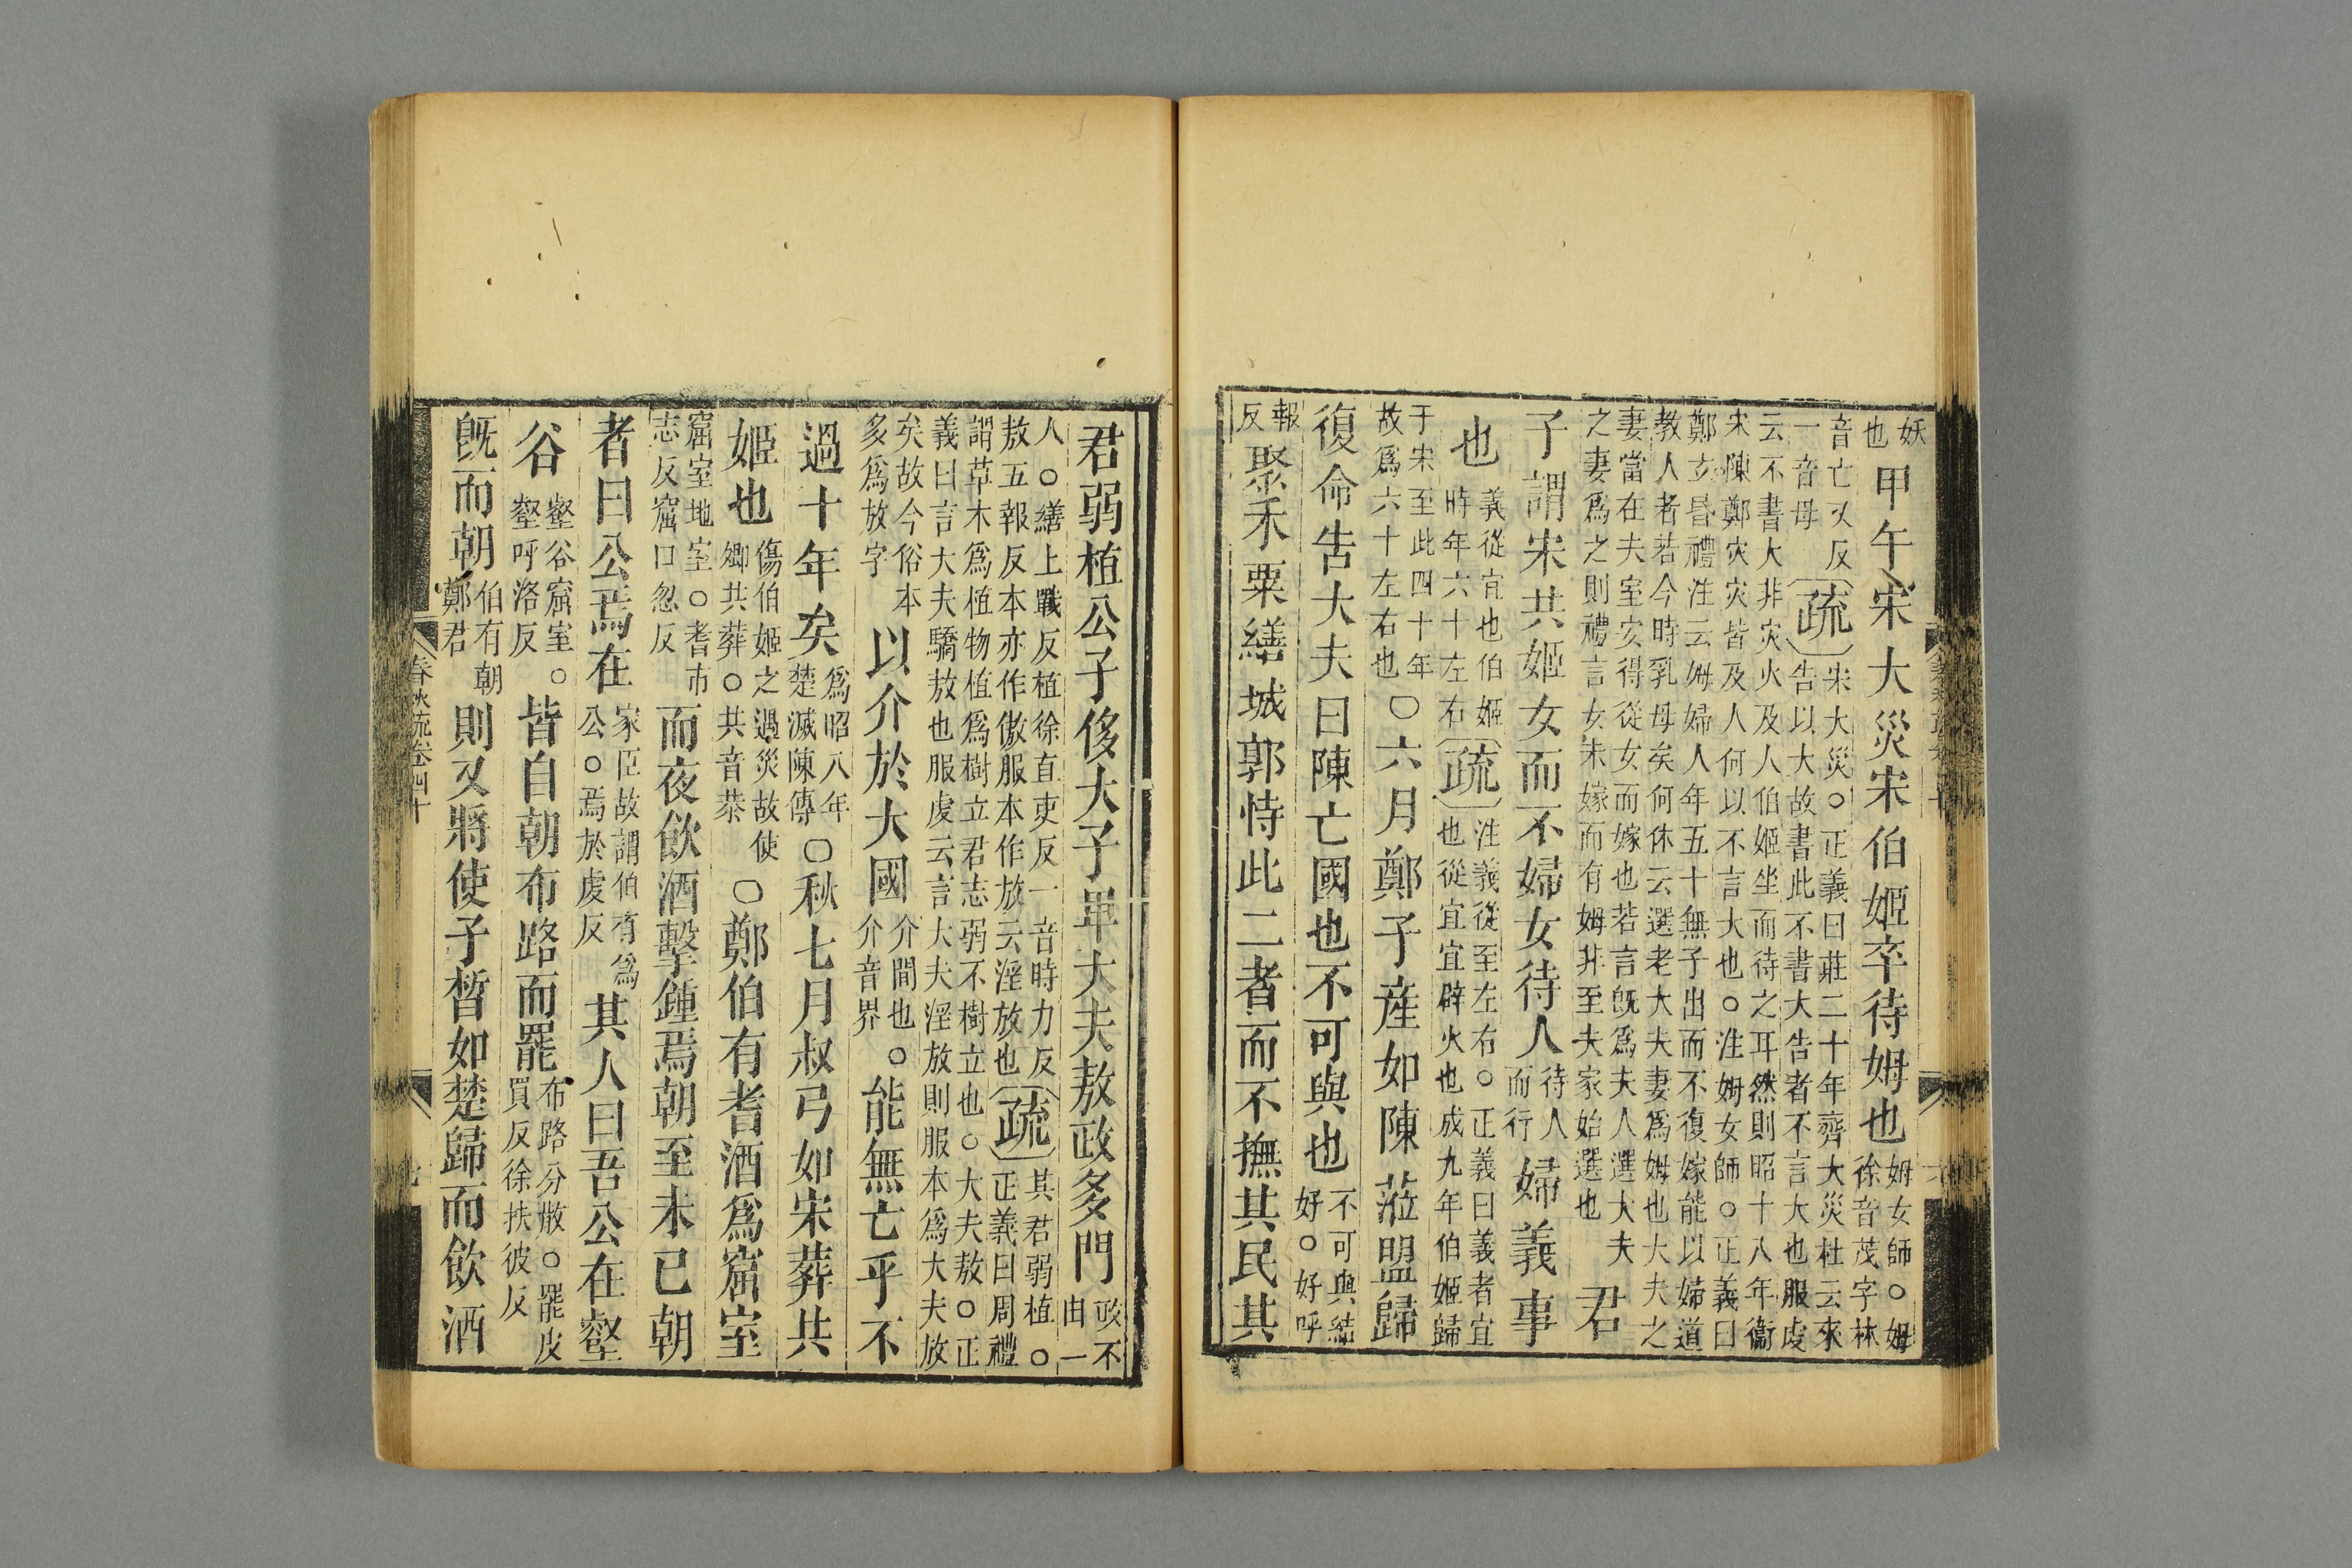 妖
也
甲午宋大災宋伯姬卒待姆也
姆女師○姆
徐音茂字林
音亡又反
一音母
疏
宋大災○正義曰莊二十年齊大災杜云來
告以大故書此不書大告者不言大也服虔
云不書大非灾火及人伯姬坐而待之耳然則昭十八年衞
宋陳鄭灾灾皆及人何以不言大也○注姆女師○正義曰
鄭玄昏禮注云姆婦人年五十無子出而不復嫁能以婦道
教人者若今時乳母矣何休云選老大夫妻爲姆也大夫之
妻當在夫室安得從女而嫁也若言旣爲夫人選大夫
之妻爲之則禮言女未嫁而有姆非至夫家始選也
君
子謂宋共姬女而不婦女待人
待人
而行
婦義事
也
義從宜也伯姬
時年六十左右
疏
注義從至左右○正義曰義者宜
也從宜宜辟火也成九年伯姬歸
于宋至此四十年
故爲六十左右也
○六月鄭子產如陳蒞盟歸
復命告大夫曰陳亡國也不可與也
不可與結
好○好呼
報
反
聚禾粟繕城郭恃此二者而不撫其民其
君弱植公子侈大子卑大夫敖政多門
政不
由一
人○繕上戰反植徐直吏反一音時力反
敖五報反本亦作傲服本作放云淫放也
疏
其君弱植○
正義曰周禮
謂草木爲植物植爲樹立君志弱不樹立也○大夫敖○正
義曰言大夫驕敖也服虔云言大夫淫放則服本爲大夫放
矣故今俗本
多爲放字
以介於大國
介間也○
介音界
能無亡乎不
過十年矣
爲昭八年
楚滅陳傳
○秋七月叔弓如宋葬共
姬也
傷伯姬之遇災故使
卿共葬○共音恭
○鄭伯有耆酒爲窟室
窟室地室○耆市
志反窟口忽反
而夜飲酒擊鍾焉朝至未已朝
者曰公焉在
家臣故謂伯有爲
公○焉於虔反
其人曰吾公在壑
谷
壑谷窟室○
壑呼洛反
皆自朝布路而罷
布路分散○罷皮
買反徐扶彼反
旣而朝
伯有朝
鄭君
則又將使子皙如楚歸而飲酒
春秋疏卷四十